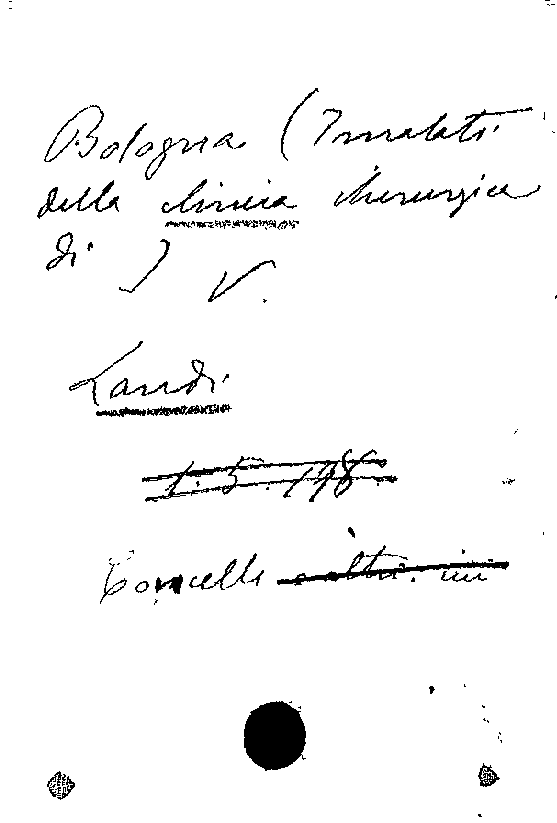 Bologna (Immalati
della clinica chirurgica
di ) V.
Landi
1. 5. 198.
Concelli e altri. in